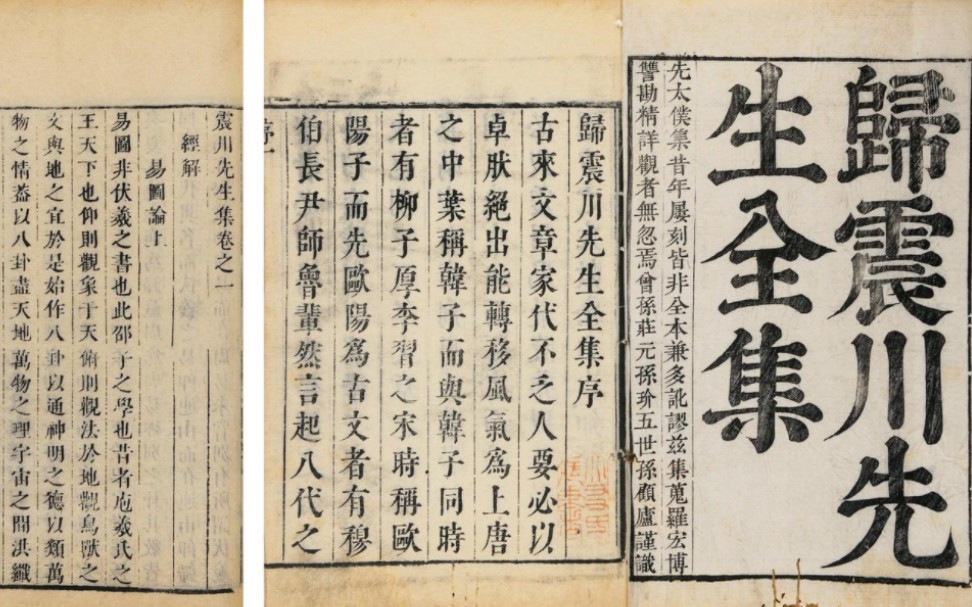 歸震川先
生全集
先太僕集昔年屢刻皆非全本兼多訛謬茲集蒐羅宏博
讐勘精詳觀者無忽焉曾孫莊元孫玠五世孫顧廬謹識
歸震川先生全集序
古來文章家代不乏人要必以
卓肰絕出能轉移風氣爲上唐
之中葉稱韓子而與韓子同時
者有柳子厚李習之宋時稱歐
陽子而先歐陽爲古文者有穆
伯長尹師魯輩然言起八代之
序一
震川先生集卷之一
經解
易圖論上
易圖非伏羲之書也此邵子之學也昔者庖羲氏之
王天下也仰則觀象于天俯則觀法於地觀鳥獸之
文與地之宜於是始作八卦以通神明之德以類萬
物之情葢以八卦盡天地萬物之理宇宙之間洪纖